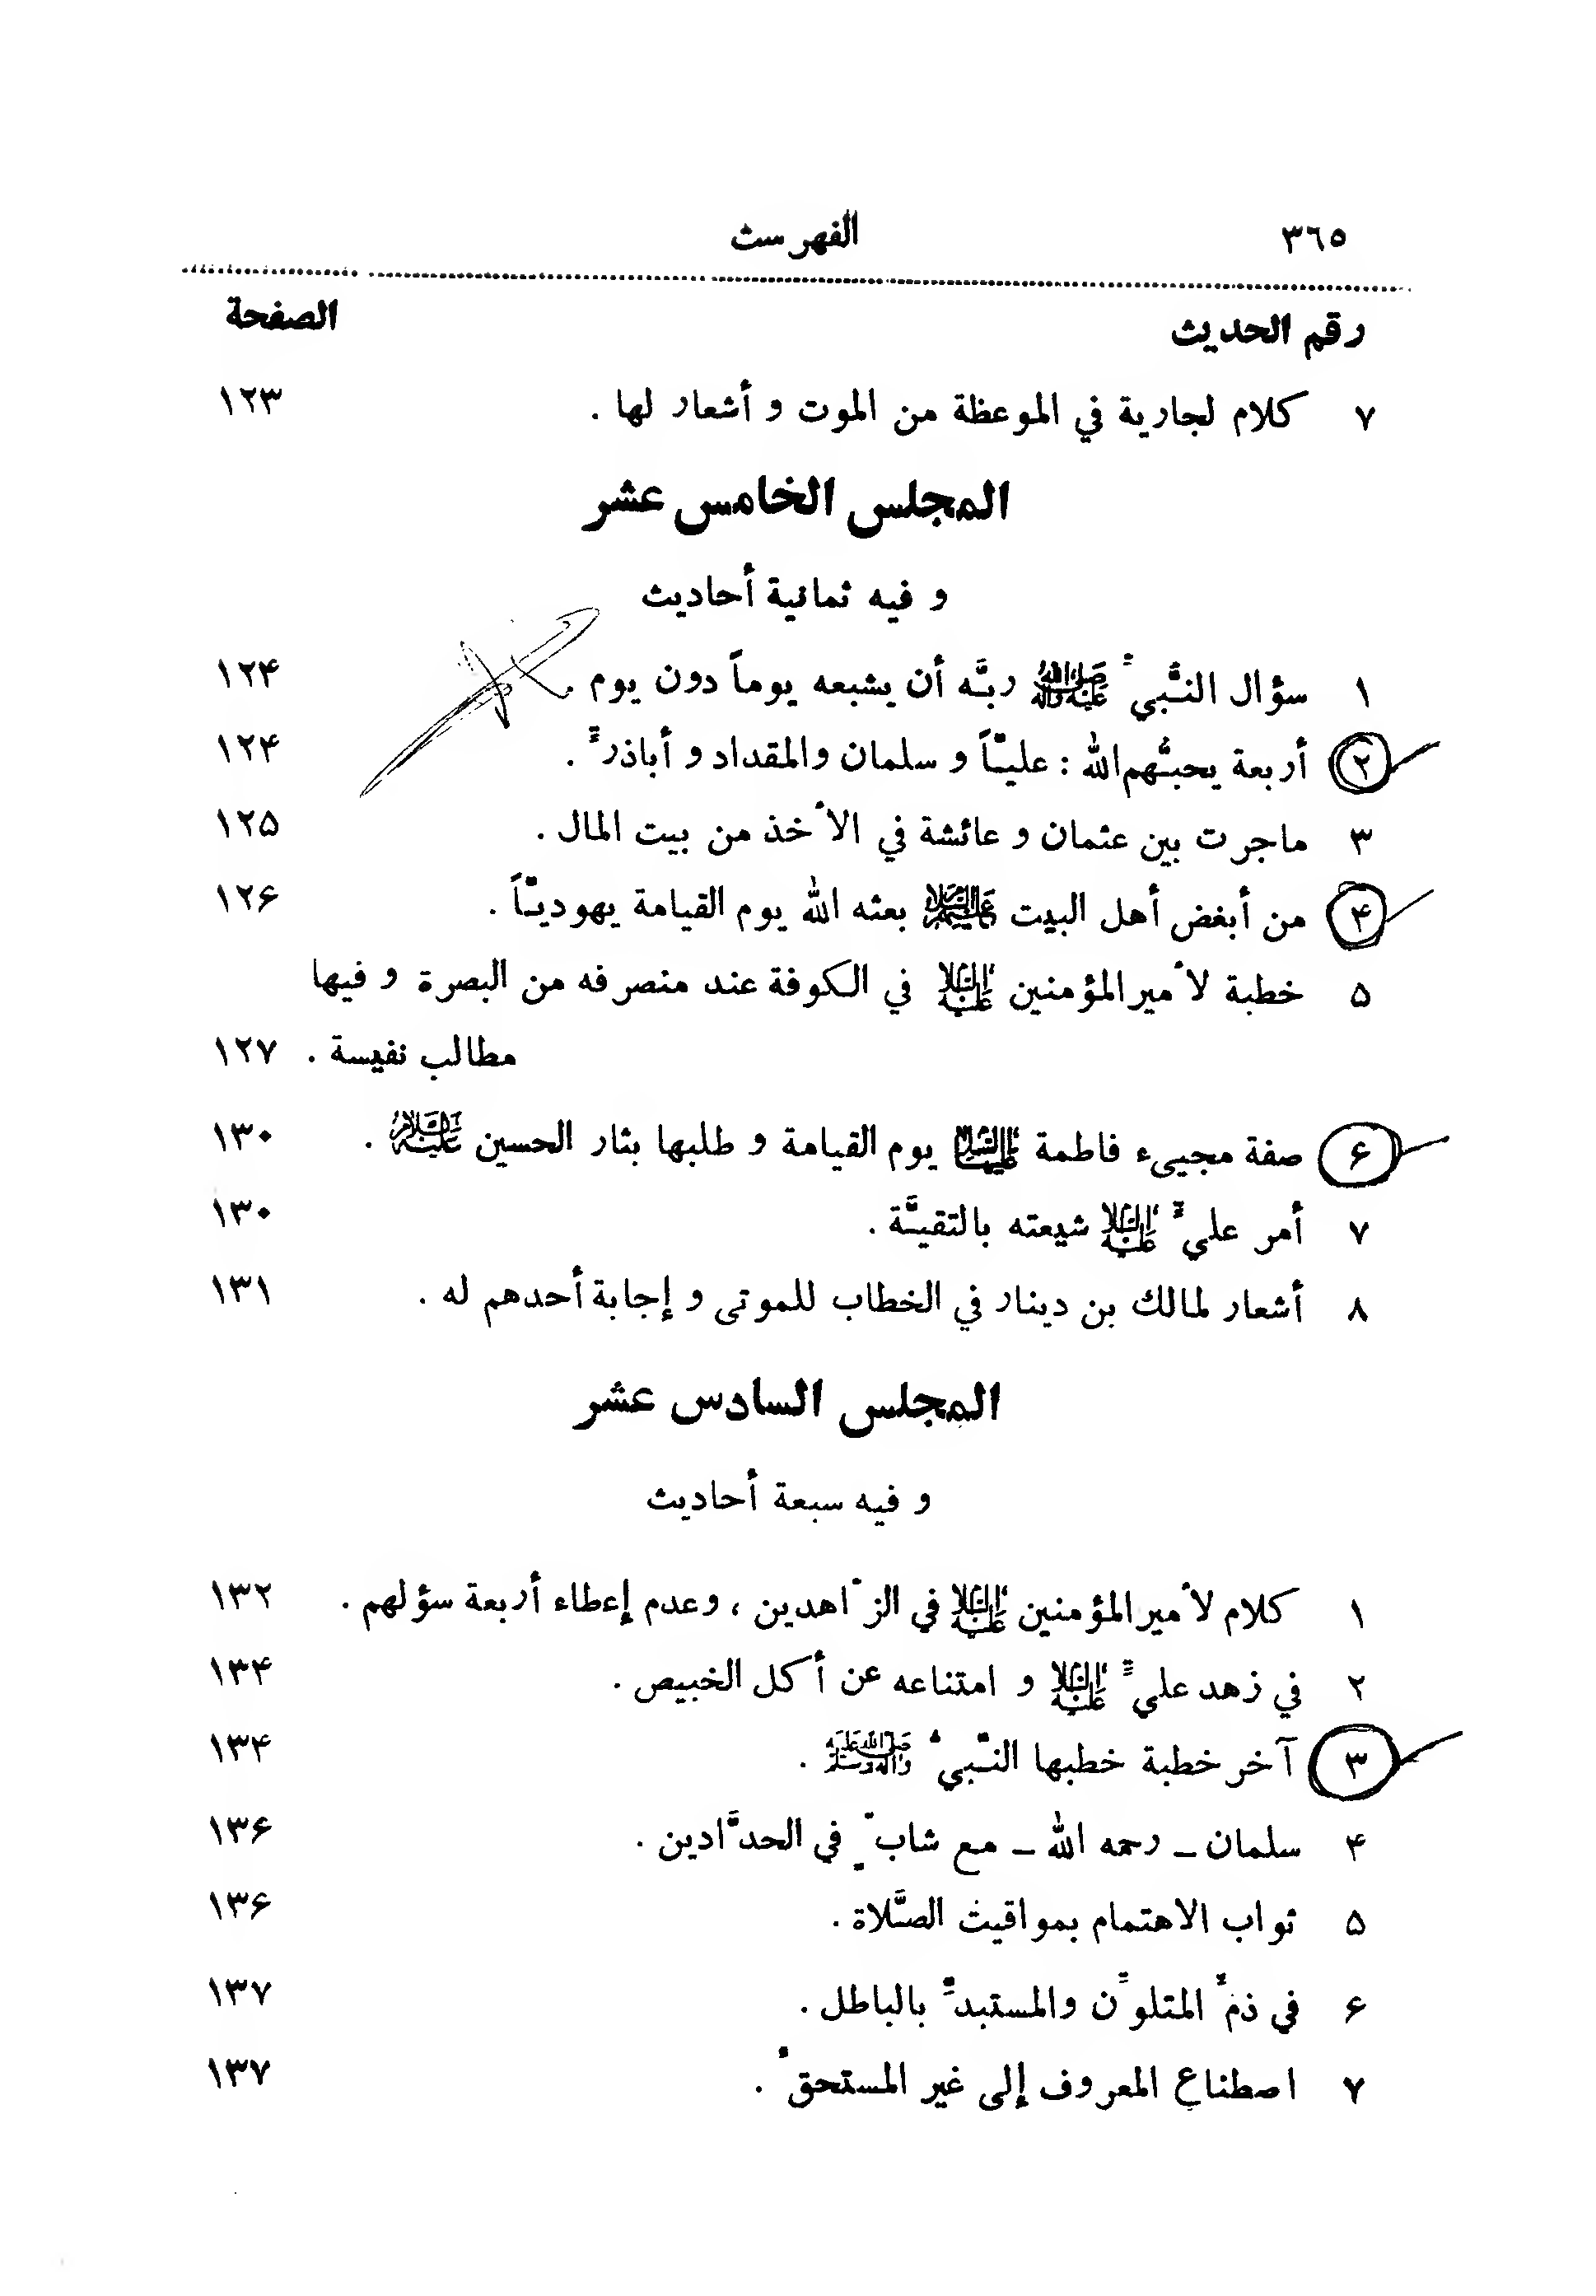 ٣٦٥ الفهرست
رقم الحديث الصفحة
٧ كلام لجارية في الموعظة من الموت و أشعار لها . ١٢٣
المجلس الخامس عشر
و فيه ثمانية أحاديث
١ سؤال النَّبيّ ﷺ ربَّه أن يشبعه يوماً دون يوم . ١٢۴
٢ أربعة يحبُّهم الله : عليّاً و سلمان والمقداد و أباذرّ . ١٢۴
٣ ماجرت بين عثمان و عائشة في الأخذ من بيت المال . ١٢۵
۴ من أبغض أهل البيت عليهم السلام بعثه الله يوم القيامة يهوديّاً . ١٢۶
۵ خطبة لأميرالمؤمنين عليه السلام في الكوفة عند منصرفه من البصرة و فيها
مطالب نفيسة . ١٢٧
۶ صفة مجيىء فاطمة عليها السلام يوم القيامة و طلبها بثار الحسين عليه السلام . ١٣٠
٧ أمر عليّ عليه السلام شيعته بالتقيَّة . ١٣٠
٨ أشعار لمالك بن دينار في الخطاب للموتى و إجابة أحدهم له . ١٣١
المجلس السادس عشر
و فيه سبعة أحاديث
١ كلام لأميرالمؤمنين عليه السلام في الزّاهدين ، وعدم إعطاء أربعة سؤلهم . ١٣٢
٢ في زهد عليّ عليه السلام و امتناعه عن أكل الخبيص . ١٣۴
٣ آخر خطبة خطبها النَّبيُّ صلى الله عليه وآله وسلم . ١٣۴
۴ سلمان ـ رحمه الله ـ مع شابّ في الحدَّادين . ١٣۶
۵ ثواب الاهتمام بمواقيت الصَّلاة . ١٣۶
۶ في ذمّ المتلوّن والمستبدّ بالباطل . ١٣٧
٧ اصطناع المعروف إلى غير المستحقّ . ١٣٧